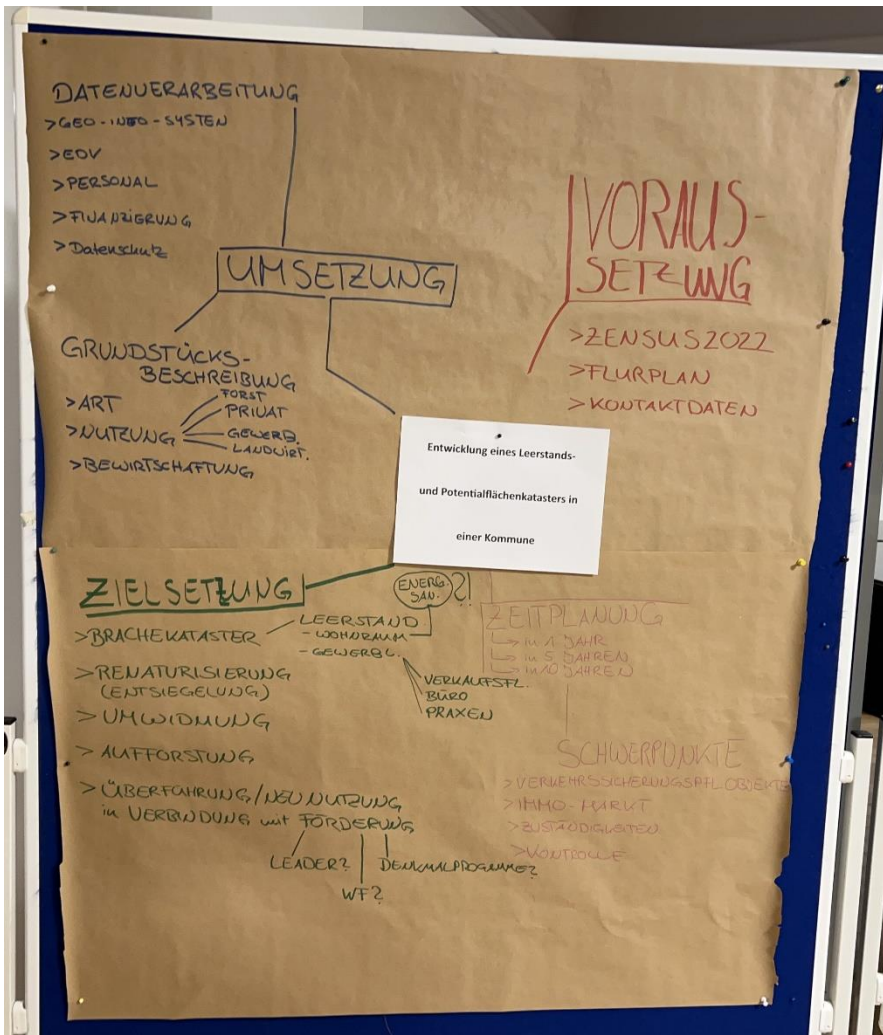 DATENVERARBEITUNG
>GEO-INFO-SYSTEM
>EDV
>PERSONAL
>FINANZIERUNG
>Datenschutz
UMSETZUNG
GRUNDSTÜCKS-
BESCHREIBUNG
>ART
>NUTZUNG
FORST
PRIVAT
GEWERB.
LANDWIRT.
>BEWIRTSCHAFTUNG
VORAUS-
SETZUNG
>ZENSUS2022
>FLURPLAN
>KONTAKTDATEN
Entwicklung eines Leerstands-
und Potentialflächenkatasters in
einer Kommune
ZIELSETZUNG
>BRACHEKATASTER
LEERSTAND
- WOHNRAUM
- GEWERBL.
ENERG.
SAN.
?!
VERKAUFSFL.
BÜRO
PRAXEN
>RENATURISIERUNG
(ENTSIEGELUNG)
>UMWIDMUNG
>AUFFORSTUNG
>ÜBERFÜHRUNG/NEUNUTZUNG
in VERBINDUNG mit FÖRDERUNG
LEADER?
WF?
DENKMALPROGRAMME?
ZEITPLANUNG
in 1 JAHR
in 5 JAHREN
in 10 JAHREN
SCHWERPUNKTE
>VERKEHRSSICHERUNGSPFL.OBJEKTE
>IMMO-MARKT
>ZUSTÄNDIGKEITEN
>KONTROLLE